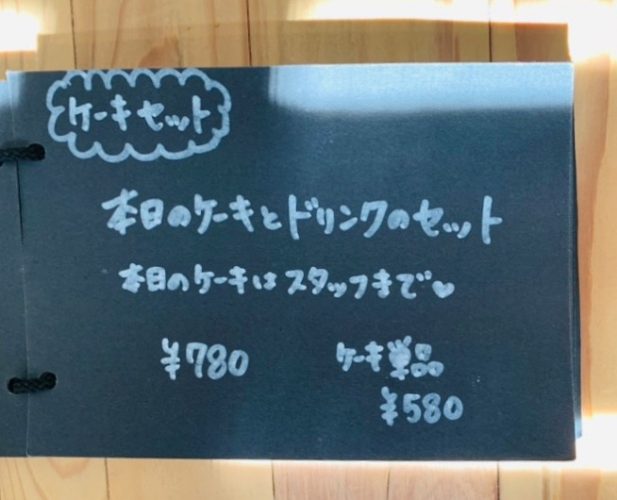 ケーキセット
本日のケーキとドリンクのセット
本日のケーキはスタッフまで♥
¥780
ケーキ単品
¥580